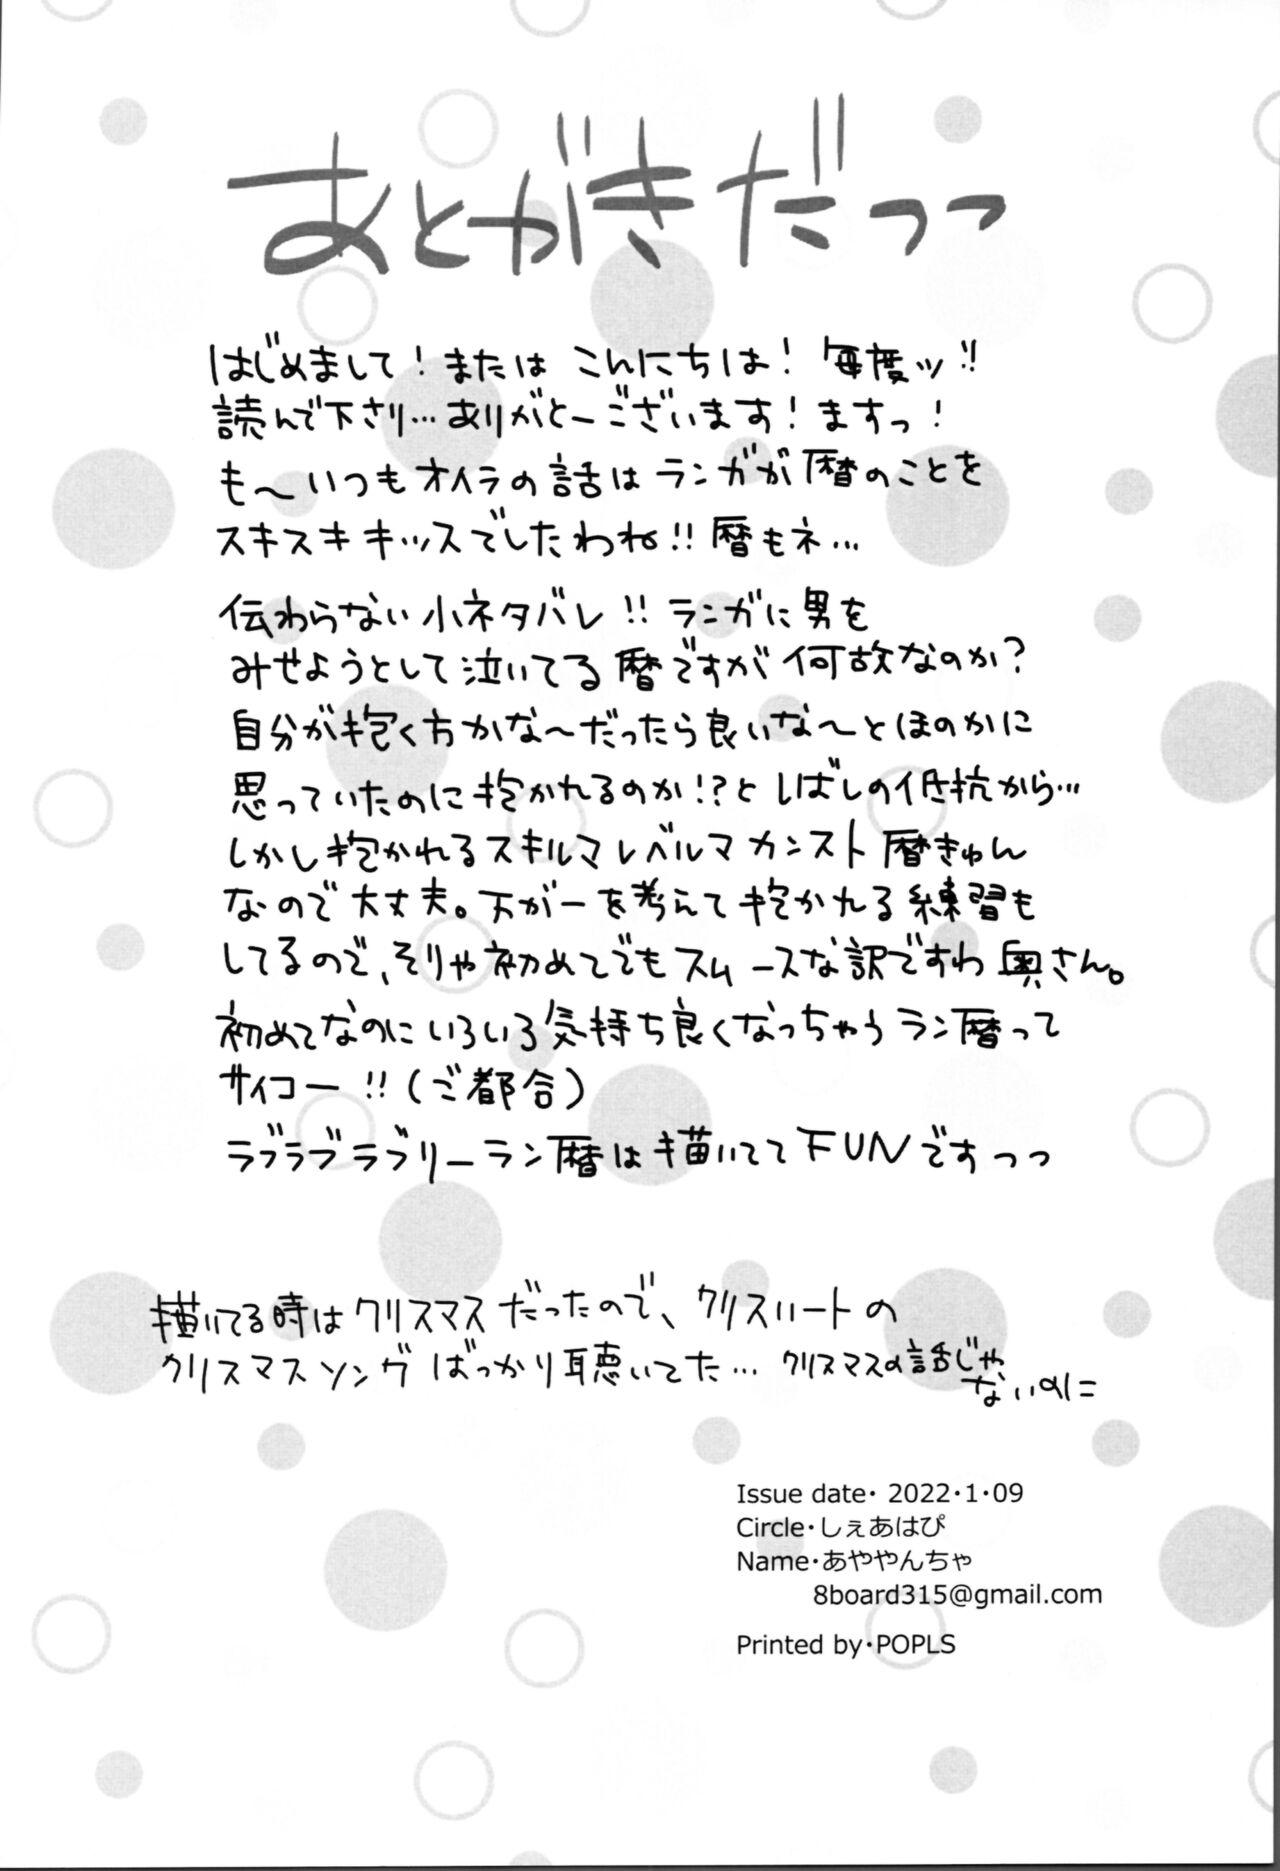 あとがきだっっ
はじめまして！またはこんにちは！毎度ッ!!
読んで下さり…ありがとーございます！ますっ！
も〜いつもオイラの話はランガが暦のことを
スキスキキッスでしたわね!!暦もネ…
伝わらない小ネタバレ!!ランガに男を
みせようとして泣いてる暦ですが何故なのか？
自分が抱く方かな〜だったら良いな〜とほのかに
思っていたのに抱かれるのか!?としばしの抵抗から…
しかし抱かれるスキルマレベルマカンスト暦きゅん
なので大丈夫。万が一を考えて抱かれる練習も
してるので、そりゃ初めてでもスムースな訳ですわ奥さん。
初めてなのにいろいろ気持ち良くなっちゃうラン暦って
サイコー!!(ご都合)
ラブラブラブリーラン暦は描いててFUNですっっ
描いてる時はクリスマスだったので、クリスハートの
クリスマスソングばっかり聴いてた…クリスマスの話じゃ
ないのに
Issue date・ 2022・1・09
Circle・しぇあはぴ
Name・あややんちゃ
8board315@gmail.com
Printed by・POPLS